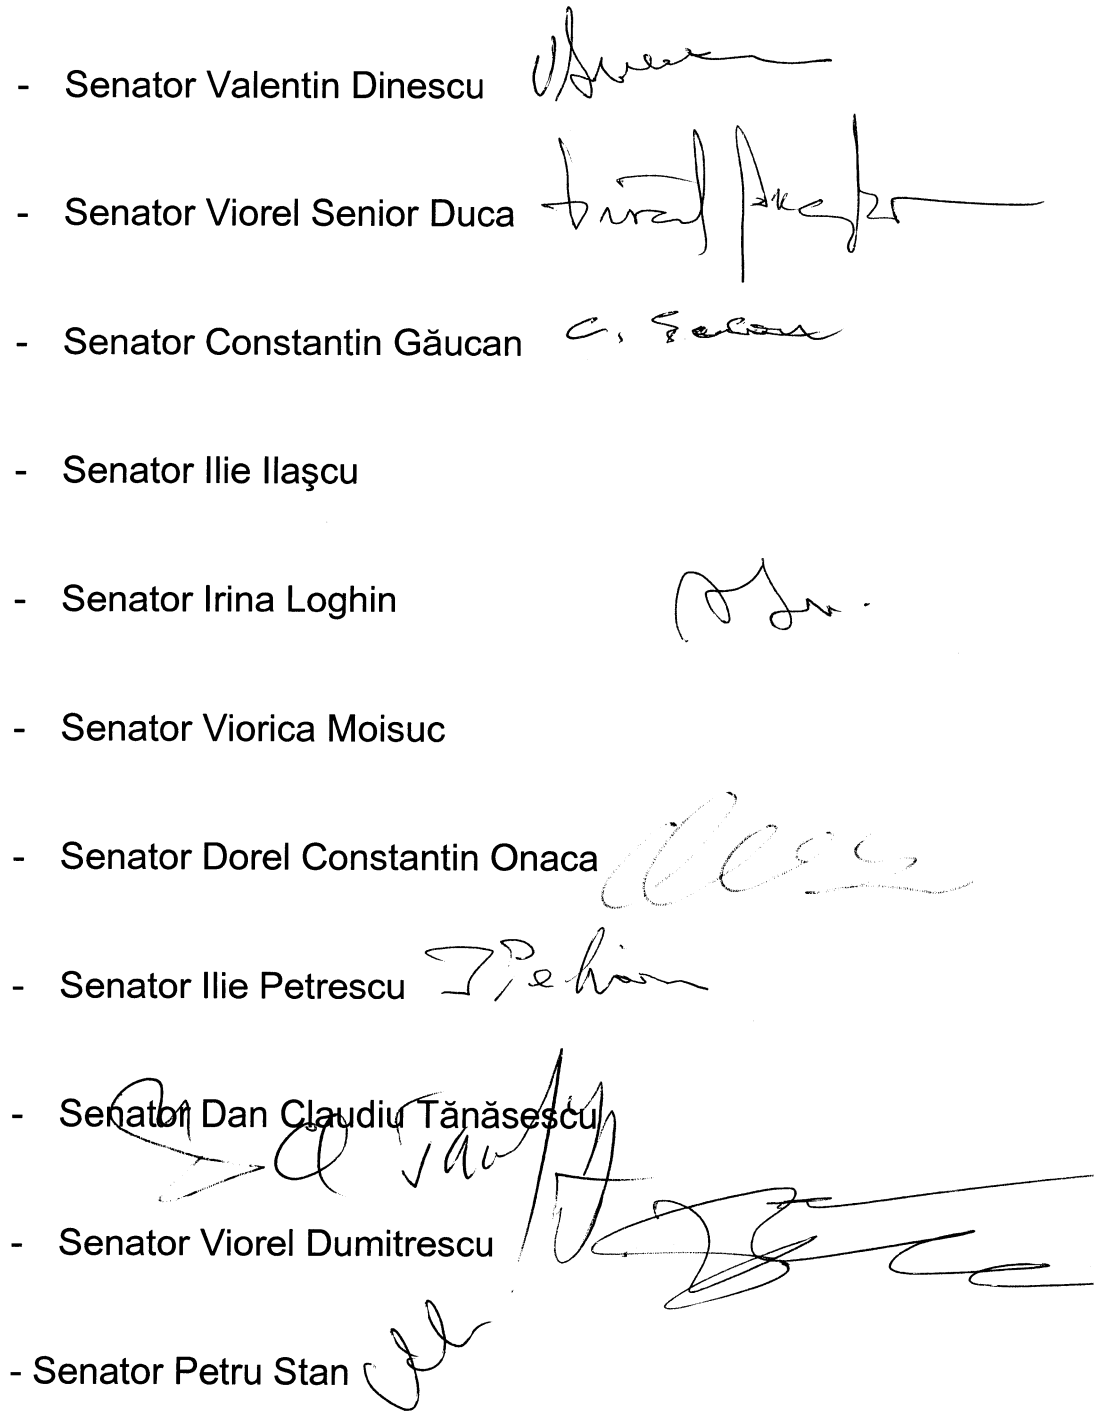 - Senator Valentin Dinescu
- Senator Viorel Senior Duca
- Senator Constantin Găucan
- Senator Ilie Ilaşcu
- Senator Irina Loghin
- Senator Viorica Moisuc
- Senator Dorel Constantin Onaca
- Senator Ilie Petrescu
- Senator Dan Claudiu Tănăsescu
- Senator Viorel Dumitrescu
- Senator Petru Stan